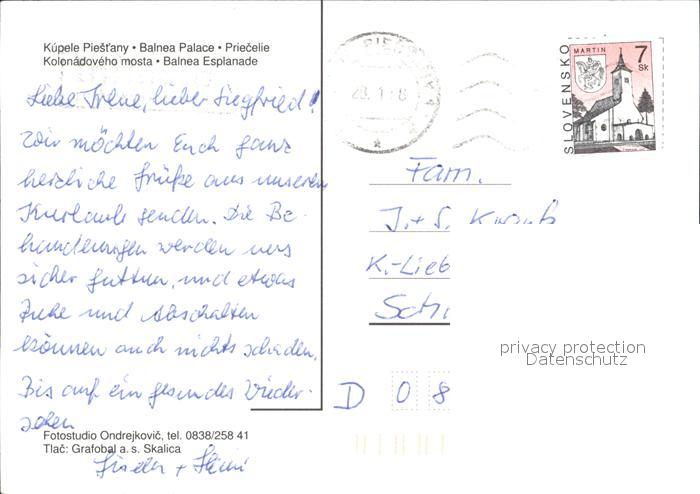 Kúpele Piešťany • Balnea Palace • Priečelie
Kolonádového mosta • Balnea Esplanade
Liebe Irene, lieber Siegfried!
Wir möchten Euch ganz
herzliche Grüße aus unserem
Kurlaub senden. Die Be-
handlungen werden uns
sicher guttun, und etwas
Ruhe und Abschalten
können auch nichts schaden.
Bis auf ein gesundes Wieder-
sehen
Fotostudio Ondrejkovič, tel. 0838/258 41
Tlač: Grafobal a. s. Skalica
SLOVENSKO
MARTIN
7
Sk
Fam.
J. + S.
K.-Lieb
Sch
D 08
privacy protection
Datenschutz